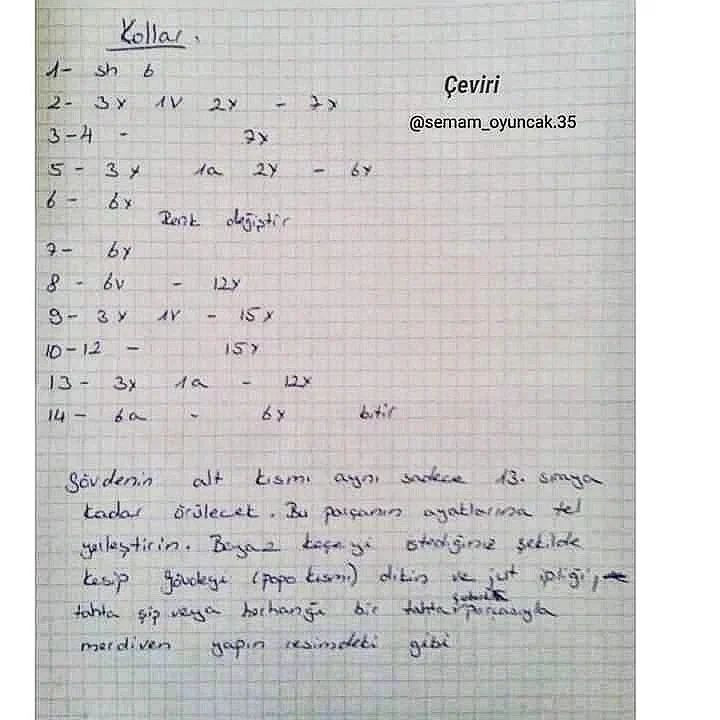 Kollar.
Çeviri
@semam_oyuncak.35
1- sh 6
2- 3x 1v 2x - 7x
3-4 - 7x
5- 3x 1a 2x - 6x
6- 6x
Renk değiştir
7- 6x
8- 6v - 12x
9- 3x 1v - 15x
10-12 - 15x
13- 3x 1a - 12x
14- 6a - 6x bitir
Gövdenin alt kısmı aynı sadece 13. sıraya
kadar örülecek. Bu parçanın ayaklarına tel
yerleştirin. Beyaz keçeyi istediğiniz şekilde
kesip gövdeye (popo kısmı) dikin ve jut ipliği,
tahta şiş veya herhangi bir tahta parçasıyla
merdiven yapın resimdeki gibi